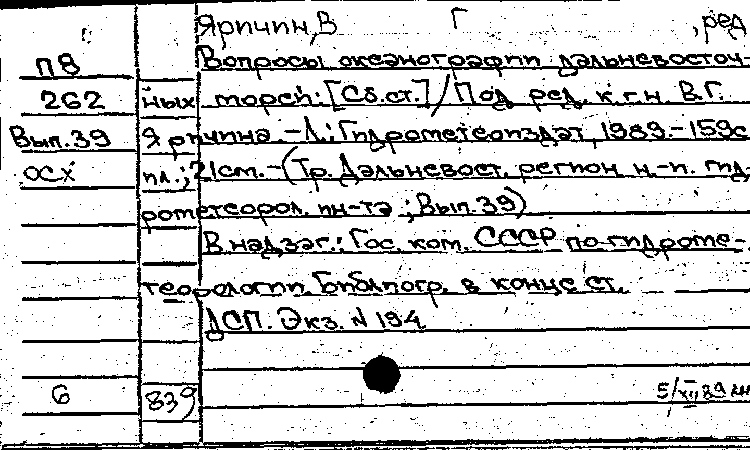 Яричин, В Г , ред
П8 Вопросы океанографии дальневосточ-
262 ных морей: [Сб.ст.] / Под ред. к.г.н. В.Г.
Вып.39 Яричина. - Л.: Гидрометеоиздат, 1989. - 159с
осх ил.; 21см. - (Тр. Дальневост. регион. н.-и. гид
рометеорол. ин-та ; Вып. 39)
В надзаг.: Гос. ком. СССР по гидроме-
теорологии. Библиогр. в конце ст.
ДСП. Экз. N 194
6 839 5/XII 89